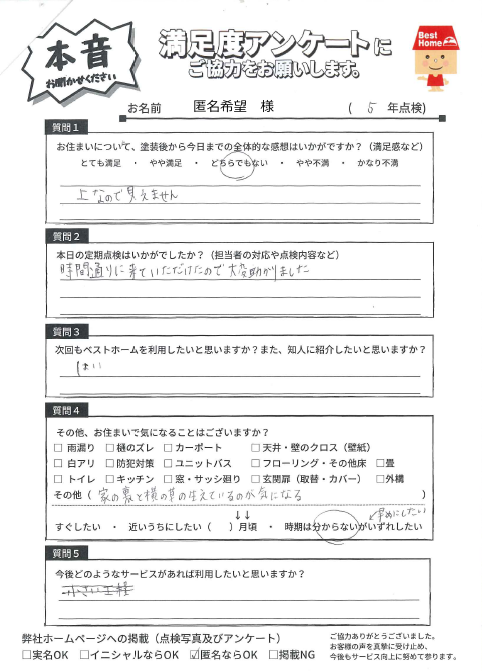 本音
お聞かせください
満足度アンケートに
ご協力をお願いします。
Best Home
お名前 匿名希望 様 ( 5 年点検)
質問1
お住まいについて、塗装後から今日までの全体的な感想はいかがですか?(満足感など)
とても満足 ・ やや満足 ・ どちらでもない ・ やや不満 ・ かなり不満
上なので見えません
質問2
本日の定期点検はいかがでしたか?(担当者の対応や点検内容など)
時間通りに来ていただけたので大変助かりました
質問3
次回もベストホームを利用したいと思いますか?また、知人に紹介したいと思いますか?
はい
質問4
その他、お住まいで気になることはございますか?
□ 雨漏り □ 樋のズレ □ カーポート □ 天井・壁のクロス(壁紙)
□ 白アリ □ 防犯対策 □ ユニットバス □ フローリング・その他床 □畳
□ トイレ □ キッチン □ 窓・サッシ廻り □ 玄関扉(取替・カバー) □外構
その他( 家の裏と横の草の生えているのが気になる )
↓↓ 早めにしたい
すぐしたい ・ 近いうちにしたい( )月頃 ・ 時期は分からないがいずれしたい
質問5
今後どのようなサービスがあれば利用したいと思いますか?
小さい工程
弊社ホームページへの掲載(点検写真及びアンケート)
□実名OK □イニシャルならOK ☑匿名ならOK □掲載NG
ご協力ありがとうございました。
お客様の声を真摯に受け止め、
今後もサービス向上に努めて参ります。